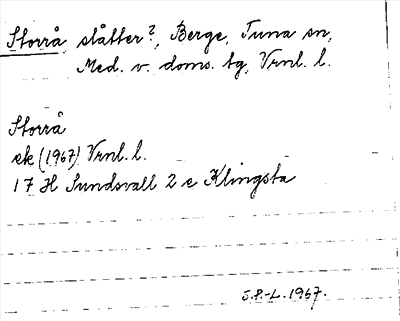 Storrå, slåtter?, Berge, Tuna sn,
Med. v. doms. tg, Vrnl. l.
Storrå
ek (1967) Vrnl. l.
17 H Sundsvall 2 e Klingsta
S.P.-L. 1967.